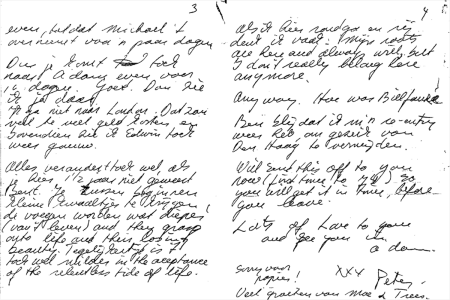 3
even, totdat Michael's
overneemt voor 'n paar dagen
Dus je komt toch
naar A'dam even, voor
10 dagen. Goed. Dan zie
ik je daar.
Ik ga niet naar London. Dat zou
veel te veel geld kosten en
bovendien zie ik Edwin toch
weer gauw.
Alles verandert toch wel, als
je hier 1 1/2 jaar niet geweest
bent. Je tussen
kleine kwaaltjes te krijgen,
de voegen worden wat dieper
(van 't leven) and they grasp
onto life and their losing
beauty. Tegelijkertijd is 't
toch wel milder in the acceptance
of the relentless tide of life.
4
als ik hier rondga en zij
dat ik vaar. My roots
are here and always will, but
I don't really belong here
anymore.
Anyway. How was
Ben blij dat ik m'n re-entry
weer heb, om gezeik van
Den Haag te vermijden.
Will send this off to you
now (find time to xx) so
you will get it in time, before
you leave.
Lots of Love to you
and see you in
a'dam.
Sorry voor
papier!
XXX Peter
Veel groeten van Moe & Trees.